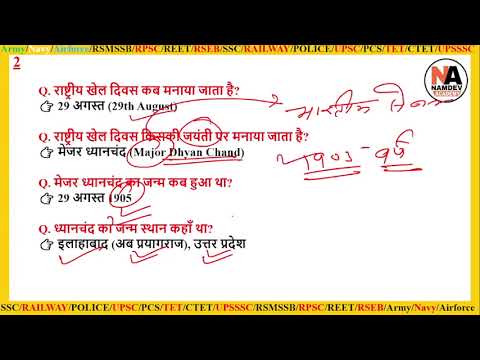 Army/Navy/Airforce/RSMSSB/RPSC/REET/RSEB/SSC/RAILWAY/POLICE/UPSC/PCS/TET/CTET/UPSSSC
2
NA
NAMDEV
ACADEMY
Q. राष्ट्रीय खेल दिवस कब मनाया जाता है?
👉 29 अगस्त (29th August)
Q. राष्ट्रीय खेल दिवस किसकी जयंती पर मनाया जाता है?
👉 मेजर ध्यानचंद (Major Dhyan Chand)
Q. मेजर ध्यानचंद का जन्म कब हुआ था?
👉 29 अगस्त 1905
Q. ध्यानचंद का जन्म स्थान कहाँ था?
👉 इलाहाबाद (अब प्रयागराज), उत्तर प्रदेश
SSC/RAILWAY/POLICE/UPSC/PCS/TET/CTET/UPSSSC/RSMSSB/RPSC/REET/RSEB/Army/Navy/Airforce